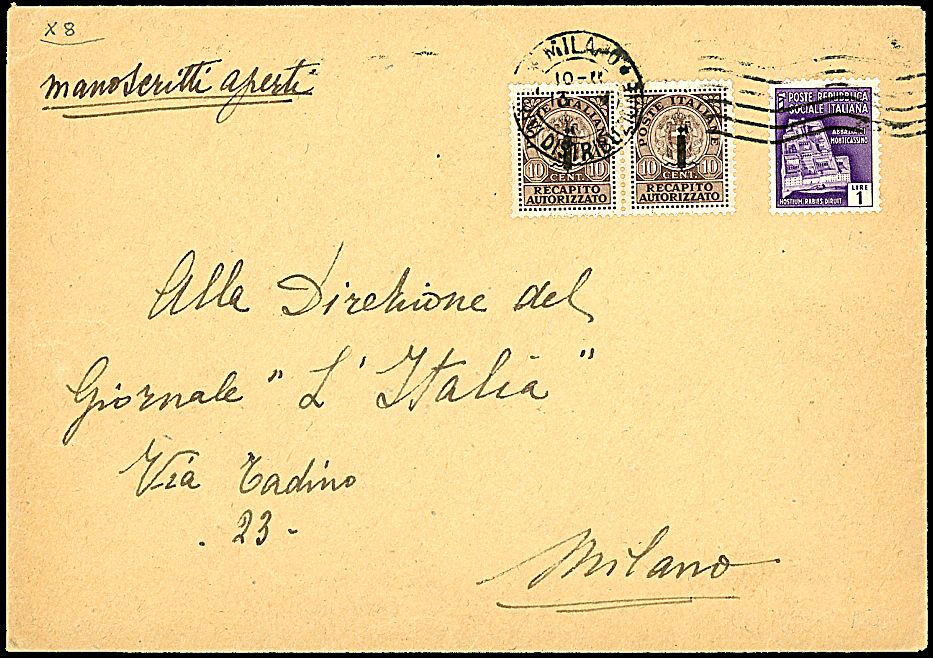 X 8
manoscritti aperti
MILANO
10 - 11
DISTRIBUZIONE
POSTE ITALIANE
10 10
CENT.
RECAPITO
AUTORIZZATO
POSTE ITALIANE
10 10
CENT.
RECAPITO
AUTORIZZATO
POSTE REPUBBLICA
SOCIALE ITALIANA
ABBAZIA DI
MONTECASSINO
LIRE
1
HOSTIUM RABIES DIRUIT
Alla Direzione del
Giornale "L'Italia"
Via Tadino
. 23 -
Milano